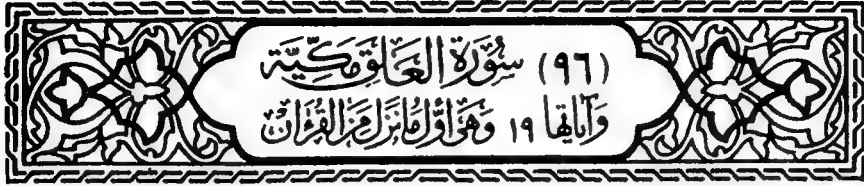 (٩٦) سُورَةُ العَلَقِ مَكِّيَّة
وَآيَاتُهَا ١٩ وَهِيَ أَوَّلُ مَا نَزَلَ مِنَ القُرْآنِ